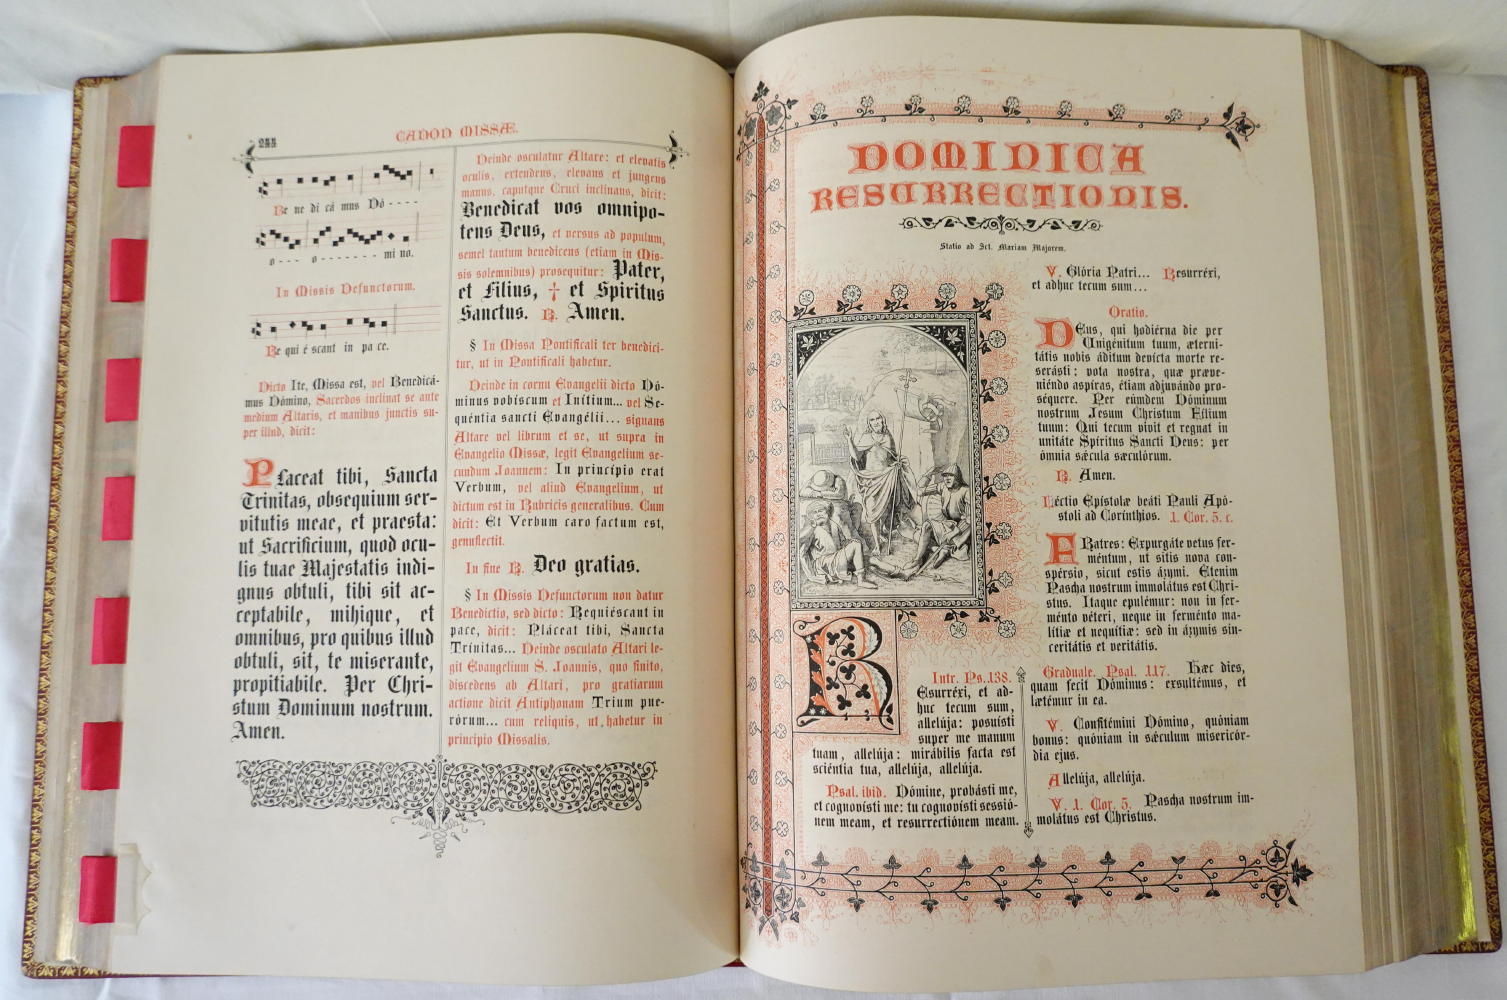 244
CANON MISSÆ.
Be ne di cá mus Dó - - - -
o - - - o - - - - - - - mi no.
In Missis Defunctorum.
Re qui é scant in pa ce.
Dicto Ite, Missa est, vel Benedicá-
mus Dómino, Sacerdos inclinat se ante
medium Altaris, et manibus junctis su-
per illud, dicit:
Placeat tibi, Sancta
Trinitas, obsequium ser-
vitutis meae, et praesta:
ut Sacrificium, quod ocu-
lis tuae Majestatis indi-
gnus obtuli, tibi sit ac-
ceptabile, mihique, et
omnibus, pro quibus illud
obtuli, sit, te miserante,
propitiabile. Per Chri-
stum Dominum nostrum.
Amen.
Deinde osculatur Altare: et elevatis
oculis, extendens, elevans et jungens
manus, caputque Cruci inclinans, dicit:
Benedicat vos omnipo-
tens Deus, et versus ad populum,
semel tantum benedicens (etiam in Mis-
sis solemnibus) prosequitur: Pater,
et Filius, † et Spiritus
Sanctus. ℟. Amen.
§ In Missa Pontificali ter benedici-
tur, ut in Pontificali habetur.
Deinde in cornu Evangelii dicto Dó-
minus vobíscum et Inítium... vel Se-
quéntia sancti Evangélii... signans
Altare vel librum et se, ut supra in
Evangelio Missæ, legit Evangelium se-
cundum Joannem: In princípio erat
Verbum, vel aliud Evangelium, ut
dictum est in Rubricis generalibus. Cum
dicit: Et Verbum caro factum est,
genuflectit.
In fine ℟. Deo gratias.
§ In Missis Defunctorum non datur
Benedictio, sed dicto: Requiéscant in
pace, dicit: Pláceat tibi, Sancta
Trínitas... Deinde osculato Altari le-
git Evangelium S. Joannis, quo finito,
discedens ab Altari, pro gratiarum
actione dicit Antiphonam Trium pue-
rórum... cum reliquis, ut habetur in
principio Missalis.
DOMINICA
RESURRECTIONIS.
Statio ad Sct. Mariam Majorem.
Intr. Ps. 138.
REsurréxi, et ad-
huc tecum sum,
allelúja: posuísti
super me manum
tuam, allelúja: mirábilis facta est
sciéntia tua, allelúja, allelúja.
Psal. ibid. Dómine, probásti me,
et cognovísti me: tu cognovísti sessió-
nem meam, et resurrectiónem meam.
℣. Glória Patri... Resurréxi,
et adhuc tecum sum...
Oratio.
DEus, qui hodiérna die per
Unigénitum tuum, æterni-
tátis nobis áditum devícta morte re-
serásti: vota nostra, quæ præve-
niéndo aspíras, étiam adjuvándo pro-
séquere. Per eúmdem Dóminum
nostrum Jesum Christum Fílium
tuum: Qui tecum vivit et regnat in
unitáte Spíritus Sancti Deus: per
ómnia sǽcula sæculórum.
℟. Amen.
Léctio Epístolæ beáti Pauli Apó-
stoli ad Corínthios. 1. Cor. 5. c.
FRatres: Expurgáte vetus fer-
méntum, ut sitis nova con-
spérsio, sicut estis ázymi. Etenim
Pascha nostrum immolátus est Chri-
stus. Itaque epulémur: non in fer-
ménto véteri, neque in ferménto ma-
lítiæ et nequítiæ: sed in ázymis sin-
ceritátis et veritátis.
Graduale. Psal. 117. Hæc dies,
quam fecit Dóminus: exsultémus, et
lætémur in ea.
℣. Confitémini Dómino, quóniam
bonus: quóniam in sǽculum misericór-
dia ejus.
Allelúja, allelúja.
℣. 1. Cor. 5. Pascha nostrum im-
molátus est Christus.